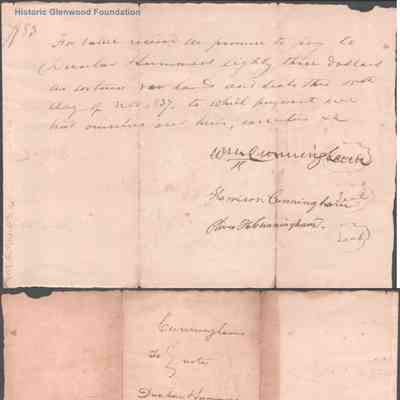 Historic Glenwood Foundation
$83
For value received we promise to pay to
Dunbar Summers eighty three dollars
as witness our hands and seals this
day of Nov. 1837, to which payment we
heirs, executors &c
Wm Cunningham
Harrison Cunningham seal
Cunningham seal
Cunningham
To Note
Dunbar Summers